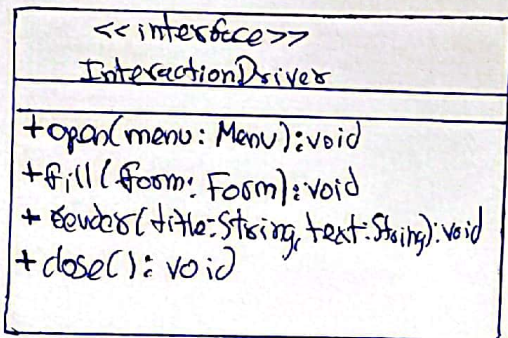 <<interface>>
InteractionDriver
+open(menu: Menu): void
+fill(form: Form): void
+ render(title: String, text: String): void
+ close(): void